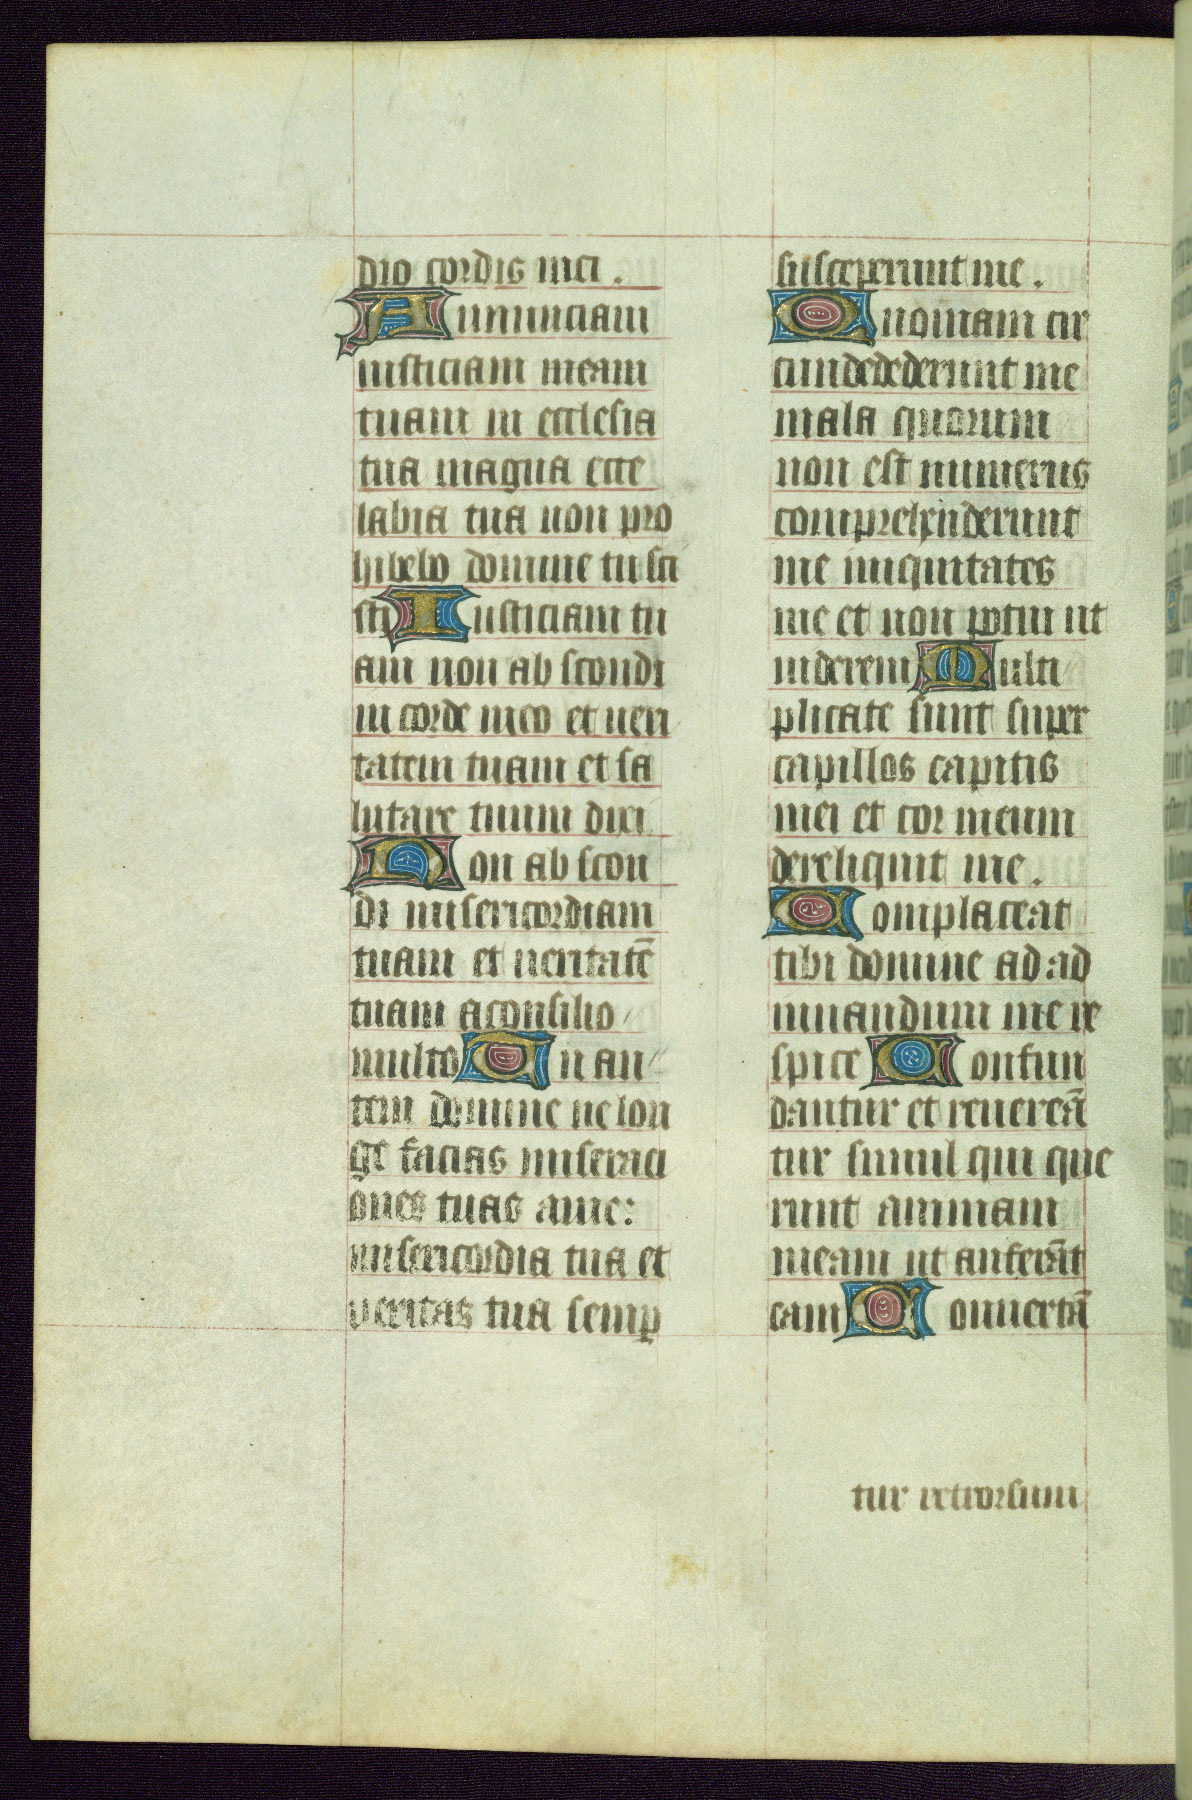 dio cordis mei.
Annunciam
iusticiam meam
tuam in ecclesia
tua magna ecce
labia tua non pro
hibebo domine tu sci
sti Iusticiam tu
am non abscondi
in corde meo et ueri
tatem tuam et sa
lutare tuum dixi
Non abscon
di misericordiam
tuam et ueritatē
tuam a consilio
multo Tu au
tem domine ne lon
ge facias miseraci
ones tuas a me:
misericordia tua et
veritas tua semp
susceperunt me.
Quoniam cir
cundedederunt me
mala quorum
non est numerus
comprehenderunt
me iniquitates
me et non potui ut
uiderem Multi
plicate sunt super
capillos capitis
mei et cor meum
dereliquit me.
Complaceat
tibi domine ad ad
iuuandum me re
spice Confun
dantur et reuereā
tur simul qui que
runt animam
meam ut auferāt
eam Conuertā
tur retrorsum